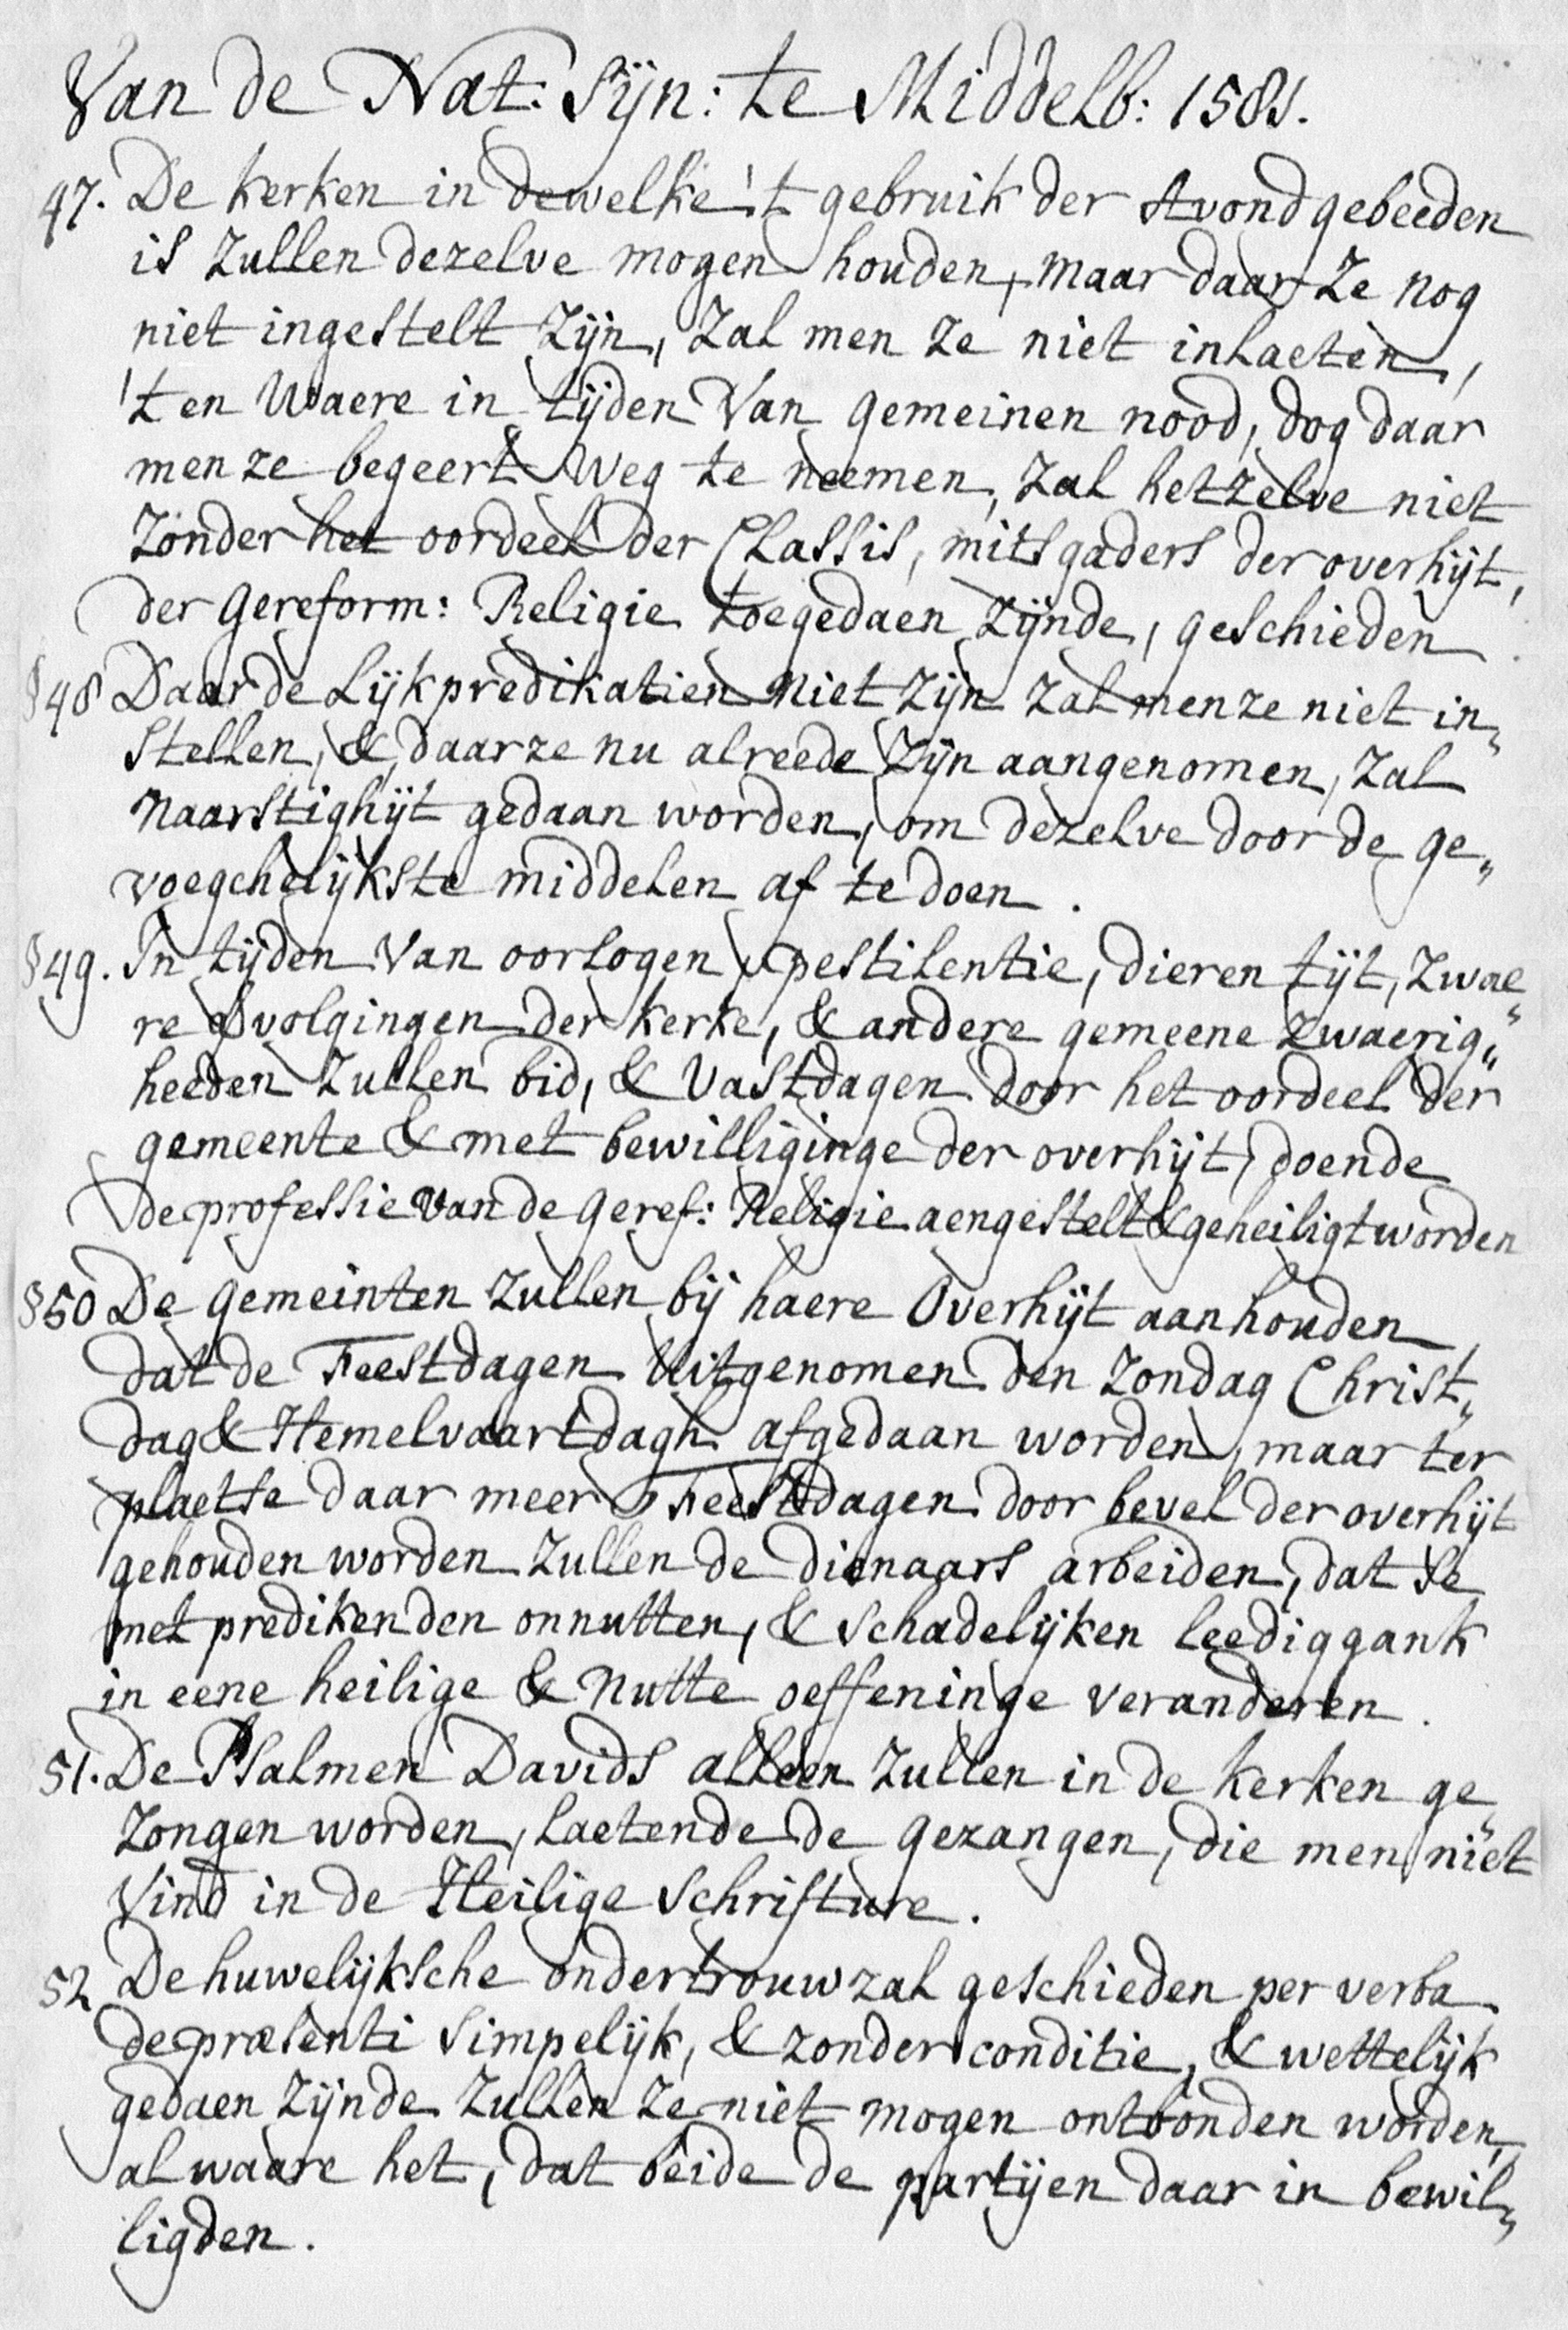 Van de Nat: Sijn: te Middelb: 1581.
47. De kerken in dewelke 't gebruik der Avondgebeeden
is zullen dezelve mogen houden, maar daar ze nog
niet ingestelt zijn, zal men ze niet inlaeten,
't en waere in tijden van gemeinen nood, dog daar
men ze begeert weg te neemen, zal hetzelve niet
zonder het oordeel der Classis, mitsgaders der overhijt,
der Gereform: Religie toegedaen zijnde, geschieden
§48 Daar de Lijkpredikatien niet zijn zal men ze niet in„
stellen, & daar ze nu alreede zijn aangenomen, zal
naarstighijt gedaan worden, om dezelve door de ge„
voegchelijkste middelen af te doen.
§49. In tijden van oorlogen, pestilentie, dieren tijt, zwae„
re volgingen der kerke, & andere gemeene zwaerig„
heeden zullen bid, & vastdagen door het oordeel der
gemeente & met bewilliginge der overhijt, doende
de professie van de Geref: Religie aengestelt & geheiligt worden
§50 De gemeinten zullen bij haere Overhijt aanhouden
dat de Feestdagen uitgenomen den Zondag Christ„
dag & Hemelvaartdagh afgedaan worden, maar ter
plaetse daar meer Feestdagen door bevel der overhijt
gehouden worden zullen de dienaars arbeiden, dat se
met prediken den onnutten, & schadelijken leediggank
in eene heilige & nutte oeffeninge veranderen.
51. De Psalmen Davids alleen zullen in de kerken ge„
zongen worden, laetende de gezangen, die men niet
vind in de Heilige Schrifture.
52 De huwelijksche ondertrouw zal geschieden per verba
de præsenti simpelijk, & zonder conditie, & wettelijk
gedaen zijnde zullen ze niet mogen ontbonden worden,
al waare het, dat beide de partijen daar in bewil„
ligden.